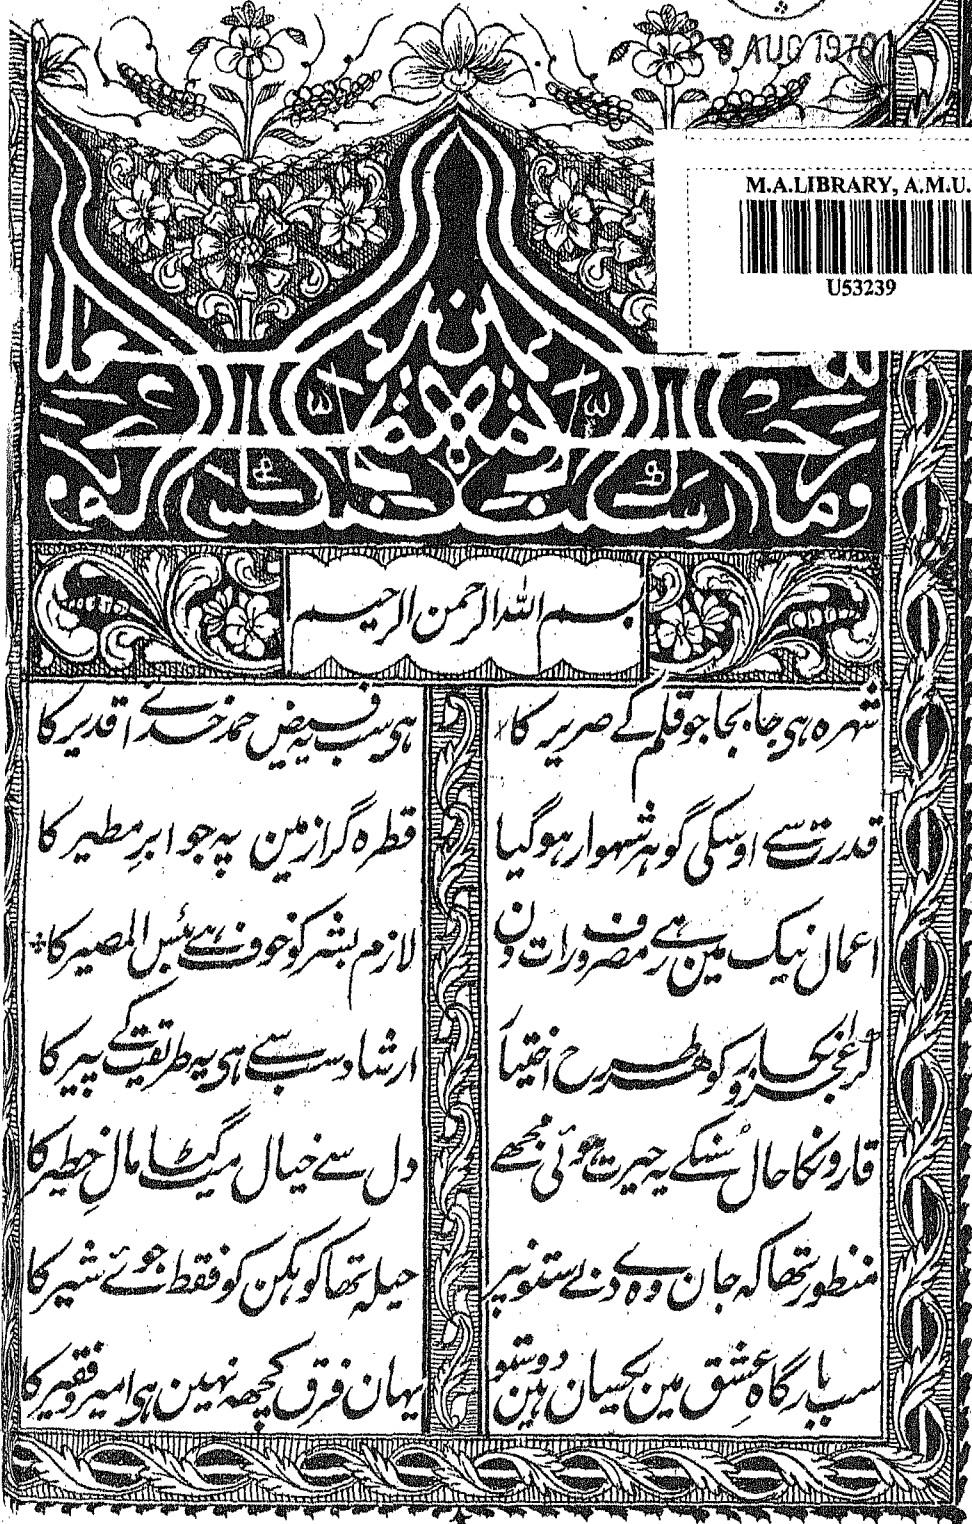 8 AUG 1970
M.A.LIBRARY, A.M.U.
U53239
بسم اللہ الرحمن الرحیم
شہرہ ہی جا بجا جو قلم کے صریر کا ہی سب یہ فیض حمد خدائے قدیر کا
قدرت سے اوسکی گوہر شہوار ہوگیا قطرہ گرا زمین پہ جو ابرِ مطیر کا
اعمال نیک مین رہے مصروف رات دن لازم بشر کو خوف ہے بئس المصیر کا
کر طرح اختیار ارشاد سب سے ہی یہ طریقت کے پیر کا
قارونکا حال سُنکے یہ حیرت ہوئی مجھے دل سے خیال میٹ گیا مالِ خطیر کا
منظور تھا کہ جان وہ دے حیلہ تھا کوہکن کو فقط جوئے شیر کا
سب بارگاہِ عشق مین یکسان ہین دوستو یہان فرق کچھہ نہین ہی امیر و فقیر کا